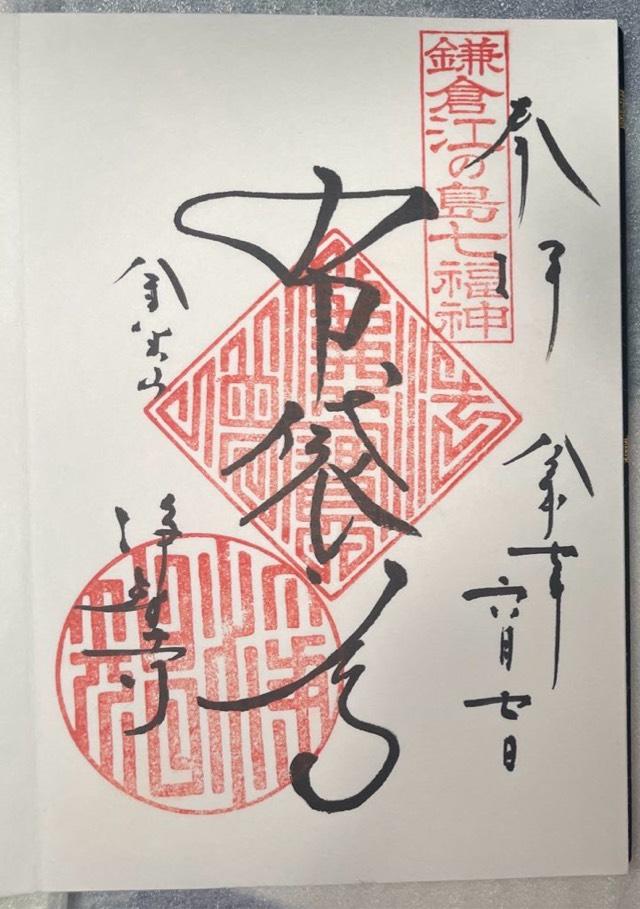 鎌倉江の島七福神
奉拝
令和七年
六月七日
布袋尊
金宝山
浄智寺